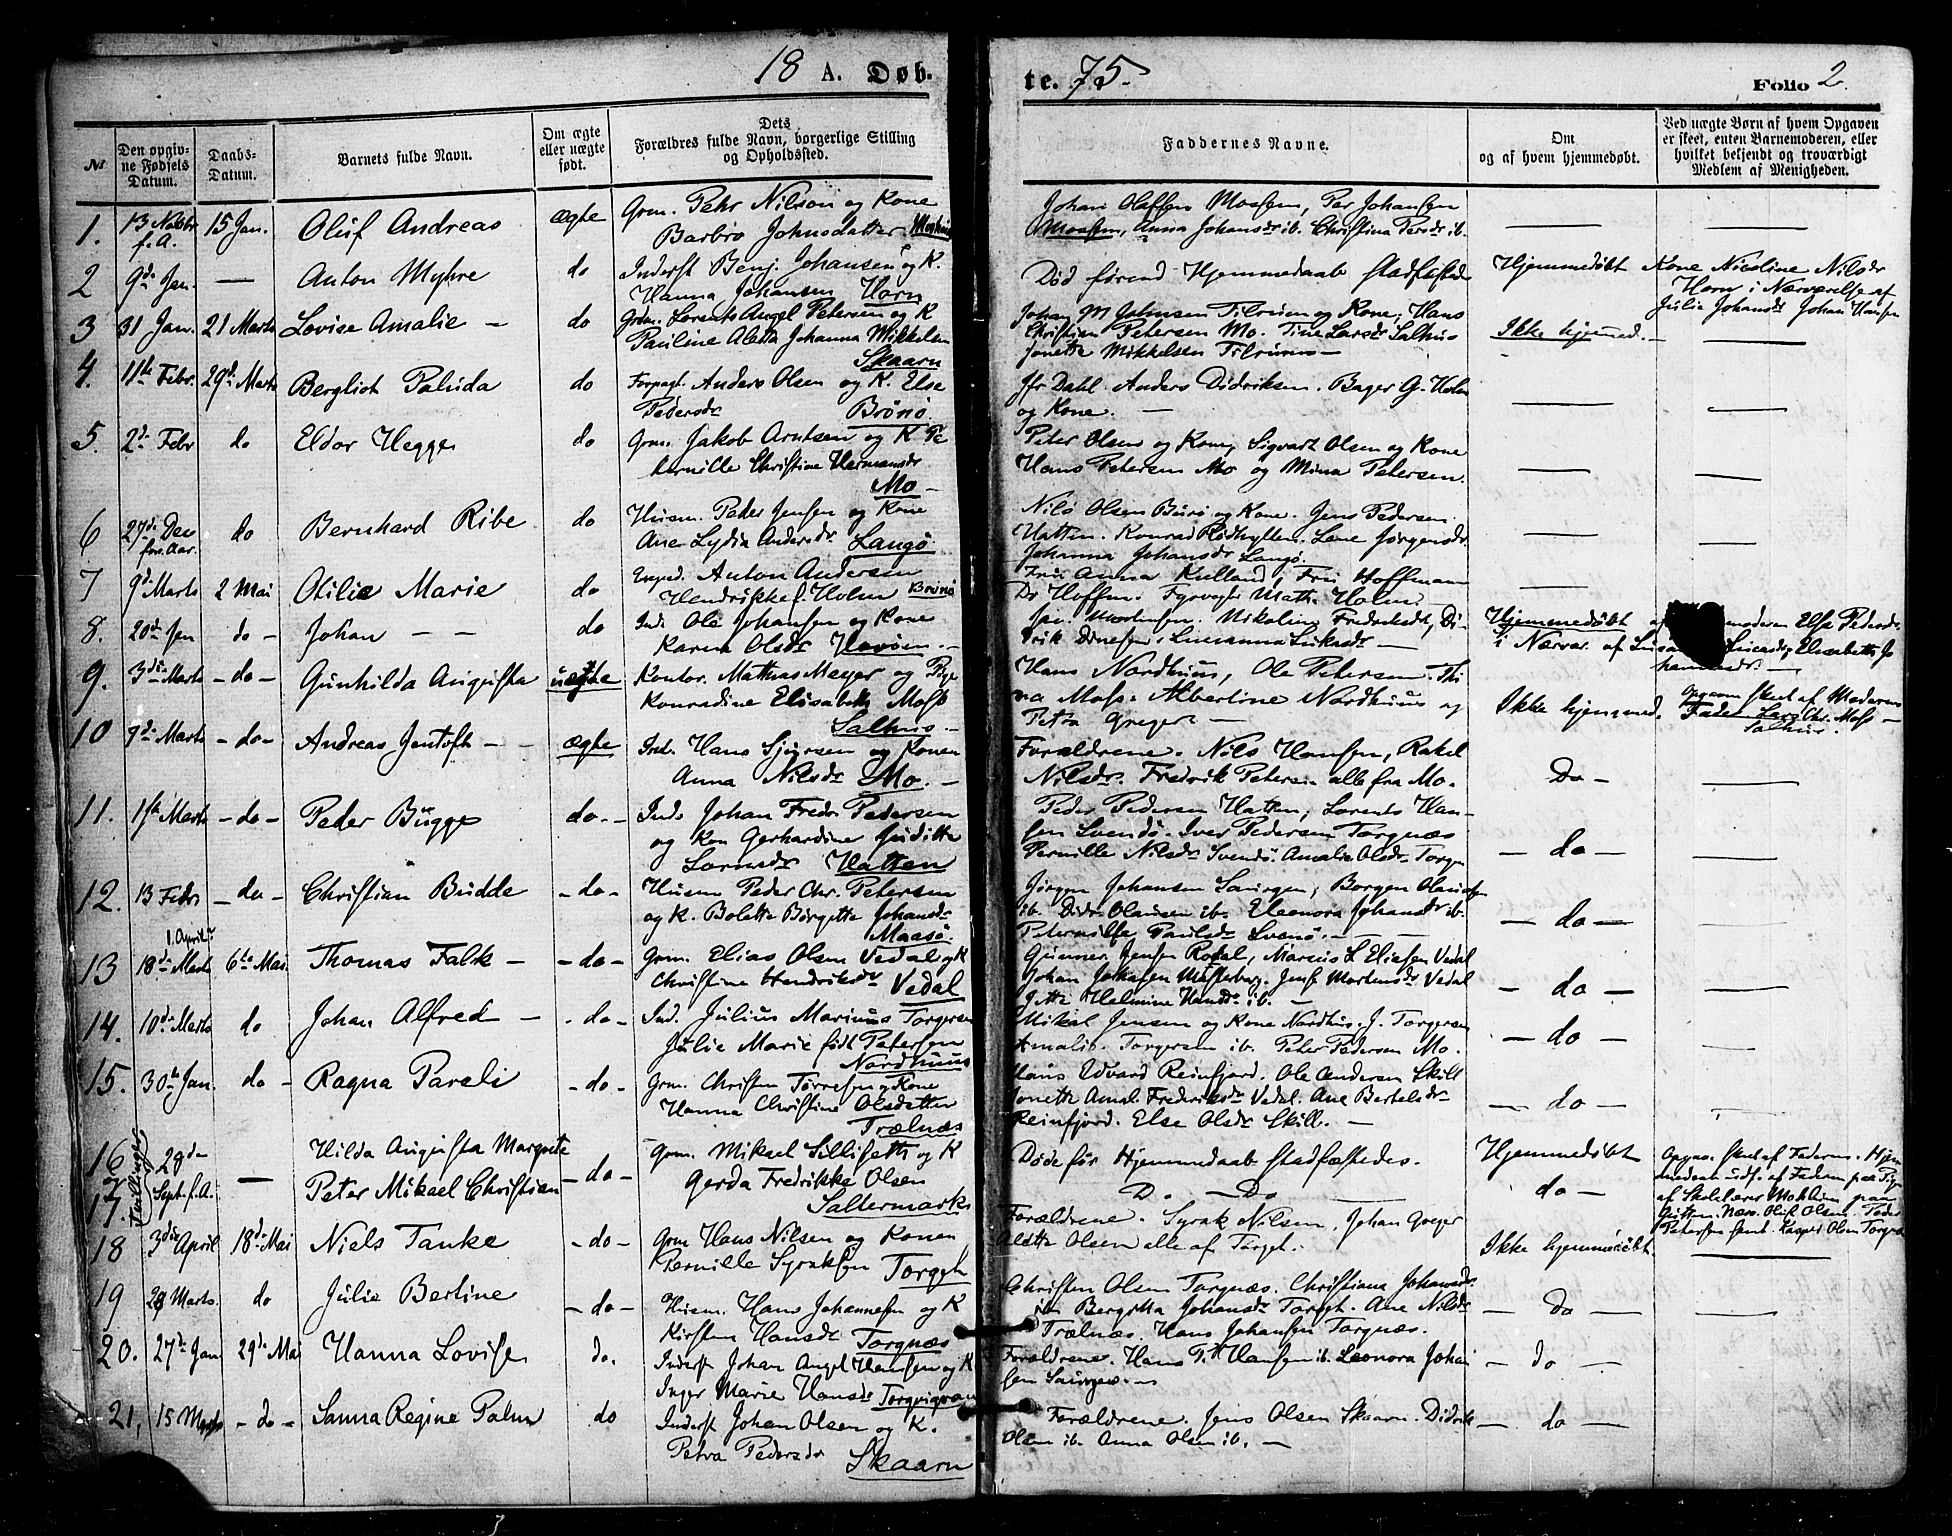 18 A. Døb-
te. 75.
Folio 2.
№
Den opgiv-
ne Fødsels
Datum.
Daabs-
Datum.
Barnets fulde Navn.
Om ægte
eller uægte
født.
Dets
Forældres fulde Navn, borgerlige Stilling
og Opholdssted.
Faddernes Navne.
Om
og af hvem hjemmedøbt.
Ved uægte Børn af hvem Opgaven
er skeet, enten Barnemoderen, eller
hvilket bekjendt og troværdigt
Medlem af Menigheden.
1. 13 Novbr f. A. 15 Jan. Oluf Andreas ægte Grm. Peter Nilson og Kone
Barbro Johnsdatter
Johan Olaffen Moesen, Per Johansen
Moesen, Anna Johansdr ib. Christina Persdr ib.
2 9de Jan. — Anton Myhre do Inderst Benj. Johansen og K.
Hanna Johansen Horn
Død førend Hjemmedaab stadfæstede
Hjemmedøbt
Kone Nicoline Nilsdr
Horn i Nærværelse af
Julie Johansdr Johan Hansen
3 31 Jan. 21 Marts Lovise Amalie — do Grm. Lorents Angel Petersen og K
Pauline Aletta Johanna Mikkelsen
Skaarn
Johan M Johnsen Tilrum og Kone, Hans
Christian Petersen Mo. Tine Larsdr Salhus
Jonette Mikkelsen Tilrum —
Ikke hjemmed. —
4. 11te Febr. 29de Marts Bergliot Paluda do Forpagt. Anders Olsen og K. Else
Pedersdr Brönö.
Jfr Dahl Anders Didriksen. Bager G. Holm
og Kone. —
5. 2de Febr do Eldor Hegge do Grm. Jakob Arntsen og K Pe
ternille Christine Hermansdr
Mo —
Peter Olsen og Kone, Sigvart Olsen og Kone
Hans Petersen Mo og Mina Petersen.
6 27de Dec for. Aar. do Bernhard Ribe do Husm. Peder Jensen og Kone
Ane Lydia Andersdr Langö
Nils Olsen Burö og Kone. Jens Pedersen
Hatten. Konrad Rødhylle. Lene Jørgensdr
Johanna Johansdr Langö.
7 9de Marts 2 Mai Otilie Marie do Anton Andersen
Hendrikke f. Holm Brönö
Frü Anna Kulland, Frü Hoffmann
Dr Hoffm. Fyrvogt Math. Holm —
8. 20de Jan do — Johan — — do Ind. Ole Johansen og Kone
Karen Olsdr Havöen. —
Nikoline Fredriksdr, Di-
drik Dinesen. Lucianna Lukasdr —
Hjemmedøbt
Else Pedersdr
i Nærvær. af Elisabeth Jo
hannesdr. —
9. 3die Marts — do — Gunhilda Augusta uægte Kontor. Mathias Meyer og Pige
Konradine Elisabeth Moss
Salhus —
Hans Nordhuus, Ole Petersen. Thi
na Moss. Albertine Nordhuus og
Petra Greger —
Ikke hjemmed.
Opgaven skeet af Moderens
Fader Lars Chr. Moss —
Salhus.
10 9de Marts — do — Andreas Jentoft — — ægte Ind. Hans Sjursen og Konen
Anna Nilsdr Mo. —
Forældrene. Nils Hansen, Rakel
Nilsdr. Fredrik Petersen alle fra Mo.
Do —
11. 1ste Marts — do — Peder Bugge do. — Ind. Johan Fredr. Pedersen
og Kon Gerhardine Guditte
Larsdr Hatten
Peder Pedersen Hatten, Lorents Han-
sen Svendö. Iver Pedersen Torgnæs
Pernille Nilsdr Svendö. Amalie Olsdr Torgn
— do —
12. 13 Febr — do — Christian Budde — do — Husm Peder Chr. Petersen
og K. Bolette Birgitte Johansdr
Maasö
Jörgen Johansen Saürgen, Borgen Olausen
ib. Didr. Olausen ib. Eleonora Johansdr ib.
Petternille Paulsdr Svenö. —
— do —
13 1. April 18de Marts 6te Mai. Thomas Falk — — do — Grm. Elias Olsen Vedal og K
Christine Hendriksdr Vedal
Gunner Jensen Rodal, Marcus L Eliasen Vedal
Vedal
Jette Helmine Hansdr ib. —
— do —
14. 10de Marts do Johan Alfred — — do — Ind. Julius Marinus Torgersen
Julie Marie født Petersen
Nordhuus
Mikal Jensen og Kone Nordhus. J. Torgersen
Amalie Torgersen ib. Peter Pedersen Mo.
— do —
15. 30te Jan. do — Ragna Pareli — do — Grm. Christen Torresen og Kone
Hanna Christine Olsdatter
Trælnæs
Hans Edvard Reinfjord. Ole Andersen Skill
Jonette Amal. Fredriksdr Vedal. Ane Bertelsdr
Reinfjord. Else Olsdr Skill. —
— do —
16 og 17. Tvillinger 28de Sept. f. A. — Hilda Augusta Margrete
Peter Mikael Christian — do — Grm. Mikael Sillisette og K
Gerda Fredrikke Olsen
Saltermark
Døde før Hjemmedaab stadfæstedes.
D. — Do
Hjemmedøbt
do —
Opgav. skeet af Faderen. Hjem
medaab udf. af Faderen paa Pigen
af Skolelærer paa
Gutten. Næv. Olüf Olsen. Peder
Petersen samt Kasper Olsen Torgnæs
18 3die April 18de Mai Niels Tanke — do — Grm Hans Nilsen og Konen
Pernille Syraksen Torget
Forældrene. Syrak Nilsen, Johan Greger
Aletta Olsen alle af Torget.
Ikke hjemmedøbt
19 28 Marts. do Julie Bertine — do — Husm. Hans Johannesen og K
Kirsten Hansdr Torgnæs
Christen Olsen Torgnæs. Christiana Johansdr.
ib Bergitta Johansdr Torget. Ane Nilsdr
Trælnæs. Hans Johansen Torgnæs.
— Do —
20. 27de Jan 29de Mai Hanna Lovise do. Inderst Johan Angel Hansen og K
Inger Marie Hansdr
Forældrene. Hans P. Hansen ib. Leonora Johan
sen Saürgen. —
— do —
21, 15 Marts — do — Sanna Regine Palm do Inderst Johan Olsen og K.
Petra Pedersdr Skaarn
Forældrene. Jens Olsen Skaarn. Didrik
Olsen ib. Anna Olsen ib. —
— do —